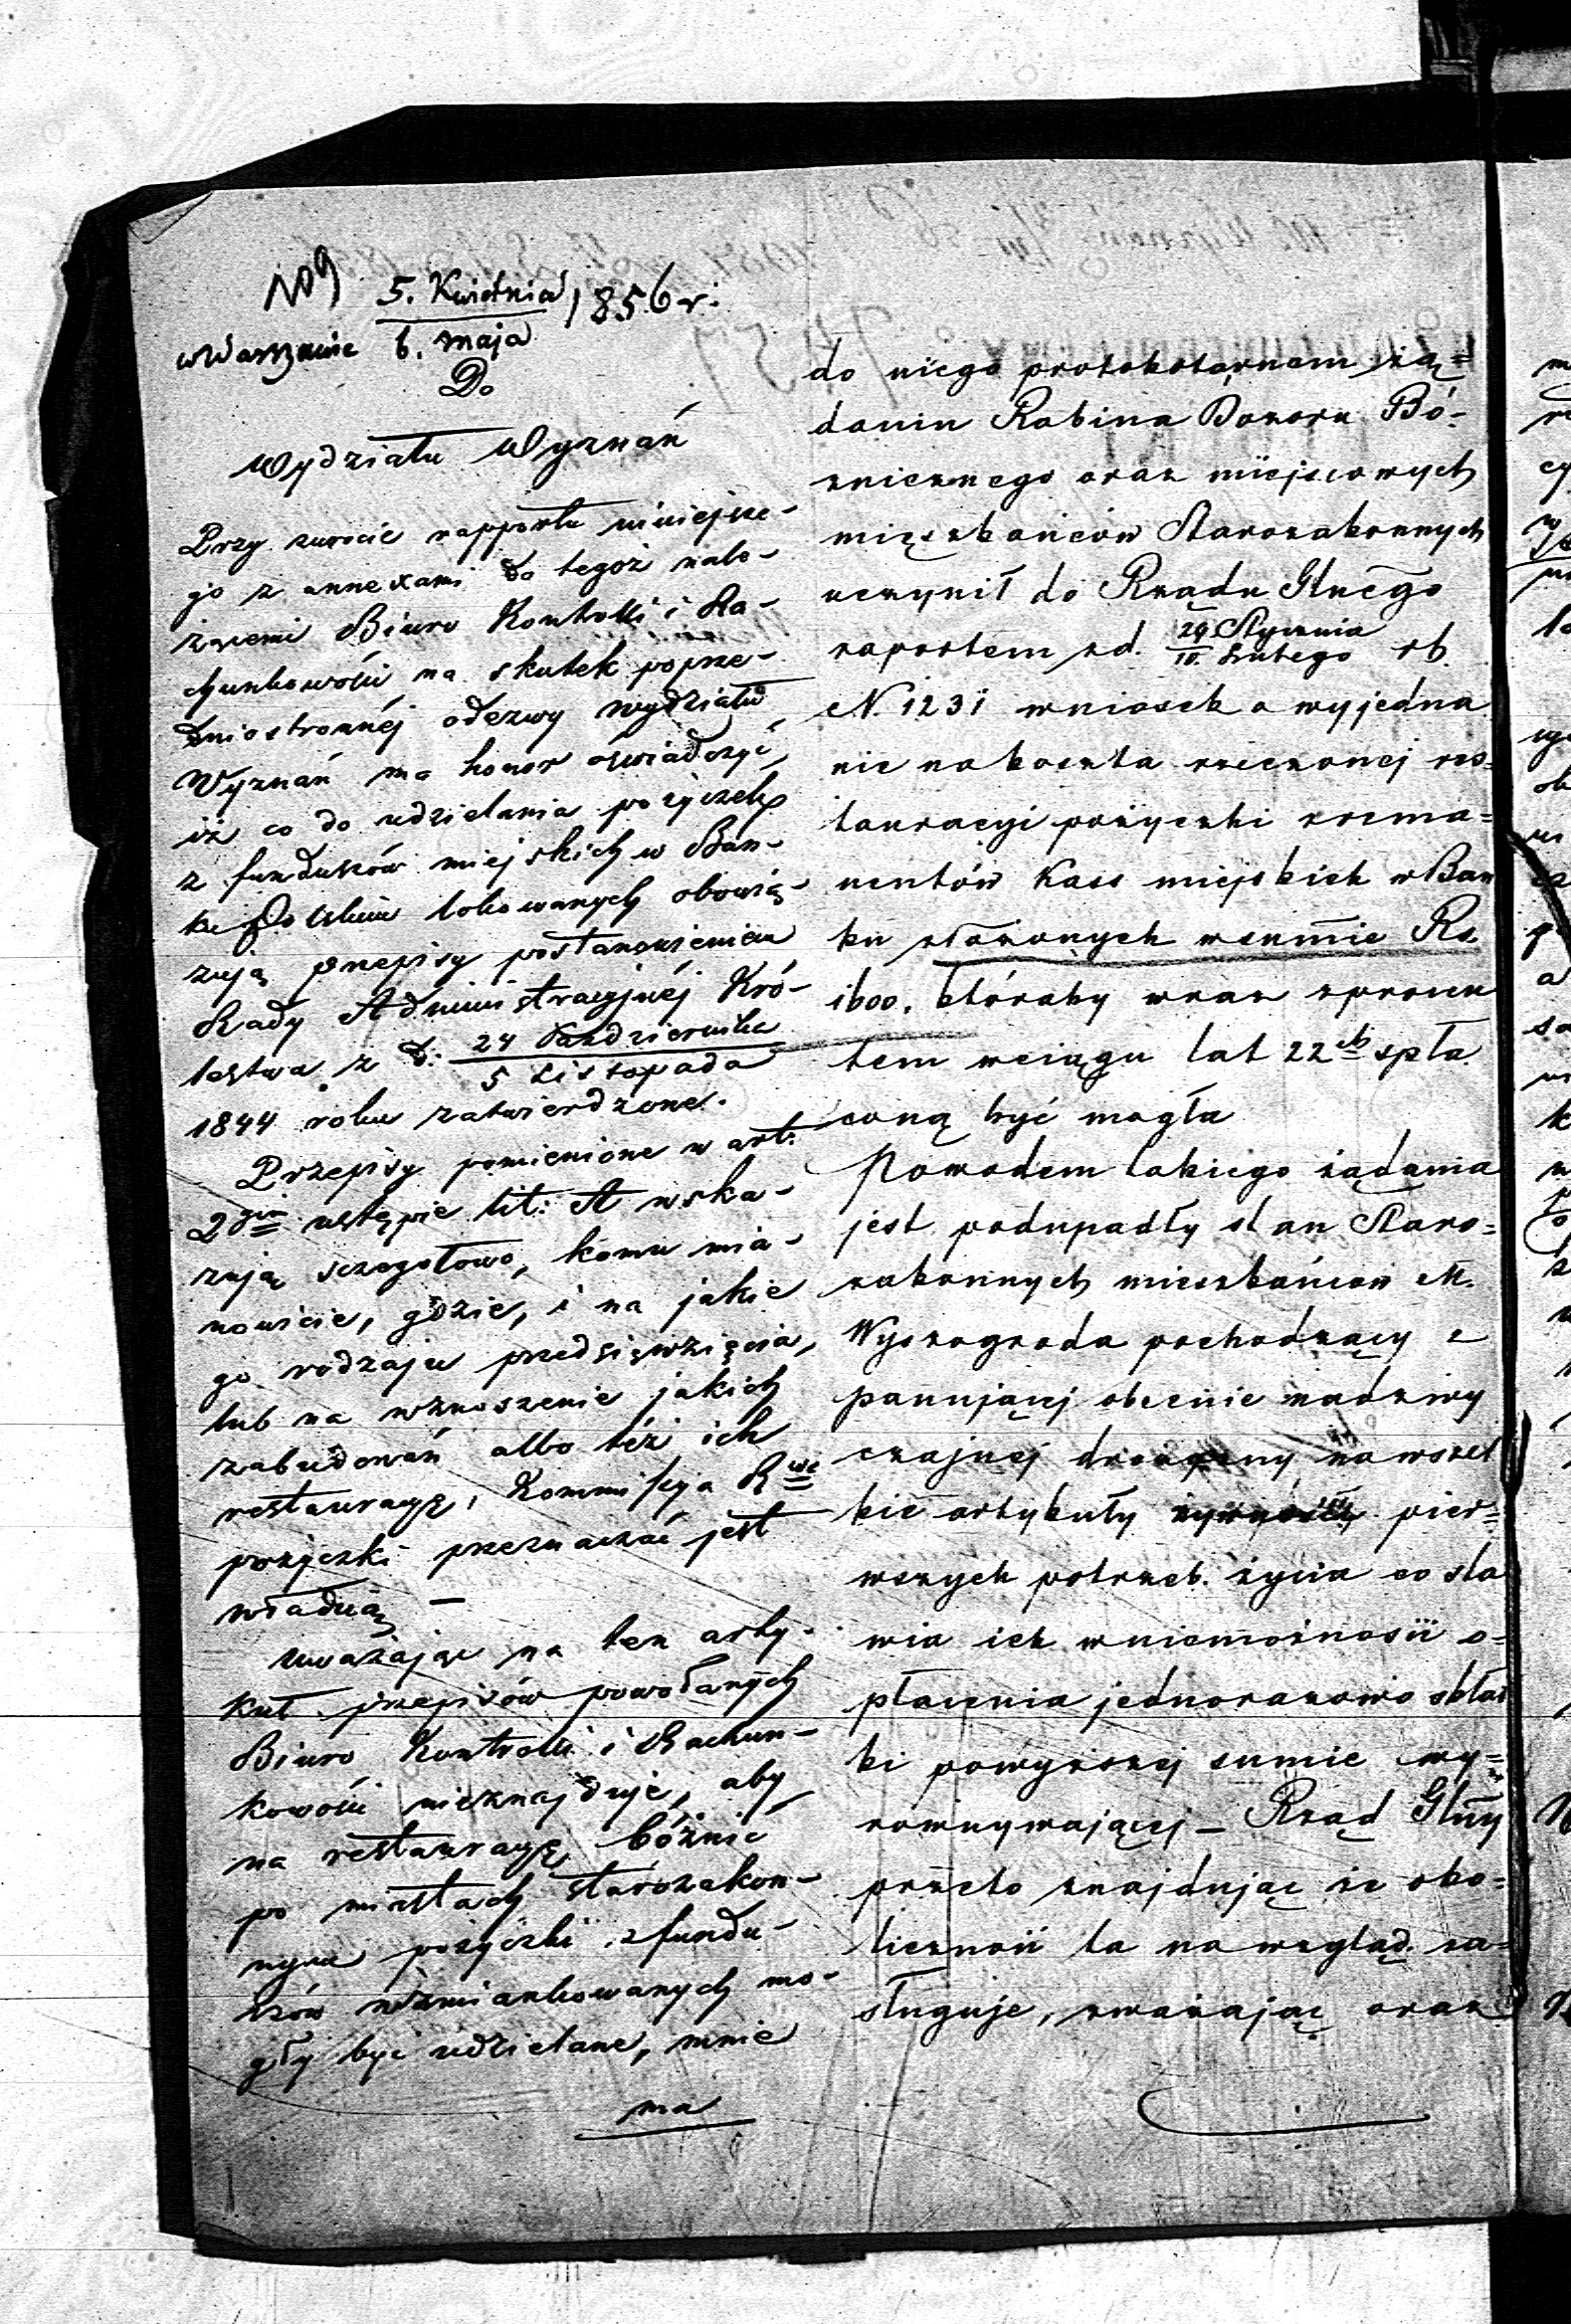 109
5. Kwietnia 1856 r:
w Warszawie 6. maja
Do
Wydziału Wyznań
Przy zwrocie rapportu niniejsze-
go z annexami do tegoż nale-
żącemi Biuro Kontrolli i Ra-
chunkowości na skutek poprze-
dniostronnéj odezwy Wydziału
Wyznań ma honor oświadczyć,
iż co do udzielania pożyczek
z funduszów miejskich w Ban-
ku Polskim lokowanych obowią-
zują przepisy postanowieniem
Rady Administracyjnéj Kró-
lestwa z d: 24 Października
5 Listopada
1844 roku zatwierdzone.
Przepisy pomienione w art:
2gim ustępie lit: A wska-
zują szczegółowo, komu mia-
nowicie, gdzie, i na jakie
go rodzaju przedsięwzięcia,
lub na wznoszenie jakich
zabudowań albo też ich
restauracyę, Kommissya Rwa
pożyczki przeznaczać jest
władną –
Uważając na ten arty-
kuł przepisów powołanych
Biuro Kontrolli i Rachun-
kowości nieznajduje, aby
na restauracyę bóżnic
po miastach starozakon-
nym pożyczki z fundu-
szów wzmiankowanych mo-
gły być udzielane, mnie
ma
do niego protokolarnem żą=
daniu Rabina Dozoru Bó-
znicznego oraz miejscowych
mięszkańców Starozakonnych
uczynił do Rządu Glnego
raportem z d. 29 Stycznia
10. Lutego rb.
N. 1231 wniosek o wyjedna
nie na koszta rzeczonej res=
tauracyi pożyczki z rema=
nentów Kass miejskich w Ban
ku złożonych w summie Rs.
1600, któraby wraz z procen
tem w ciągu lat 22ch spła
coną być mogła
Powodem takiego żądania
jest podupadły stan Staro=
zakonnych mieszkańców M.
Wyszogroda pochodzący z
panującej obecnie nadzwy
czajnej drożyzny na wszel
kie artykuły pier=
wszych potrzeb życia co sta
wia ich w niemożności o=
płacenia jednorazowo skład
ki powyższej sumie wy=
równywającej – Rząd Glny
przeto znajdując że oko=
liczność ta na wzgląd za=
sługuje, zważając oraz